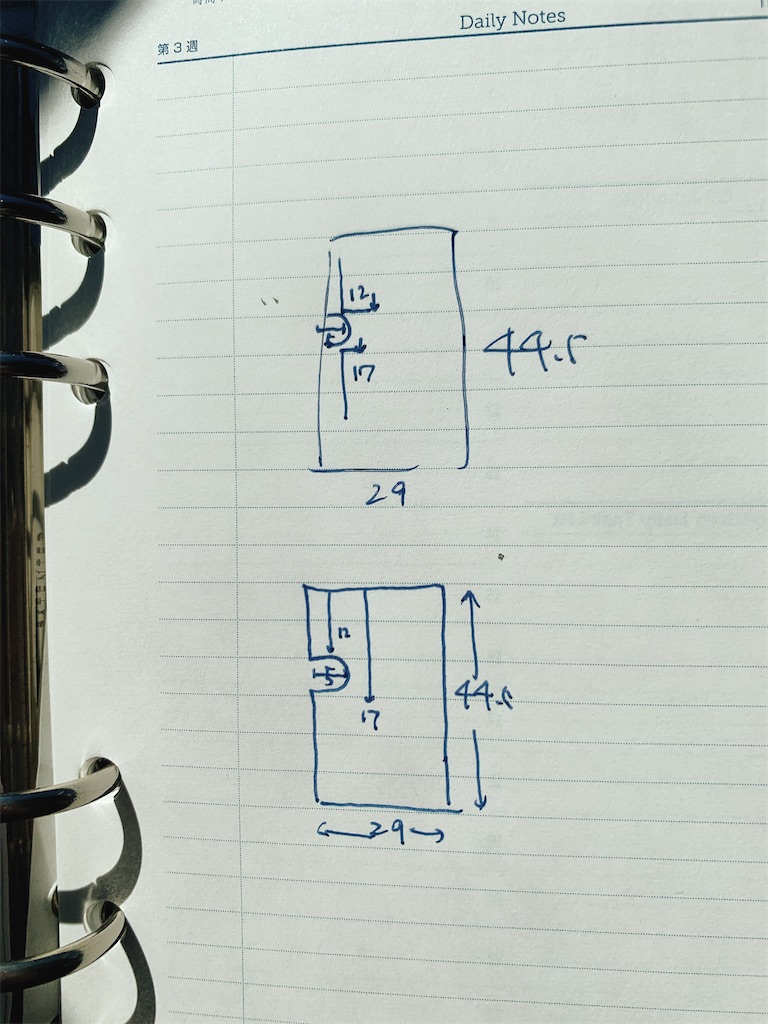 Daily Notes
第3週
12
5
17
44.5
29
12
5
17
44.5
29